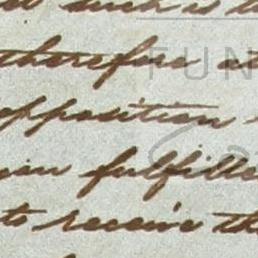 such is
therefore
FUN
opposition
fulfille
to receive th